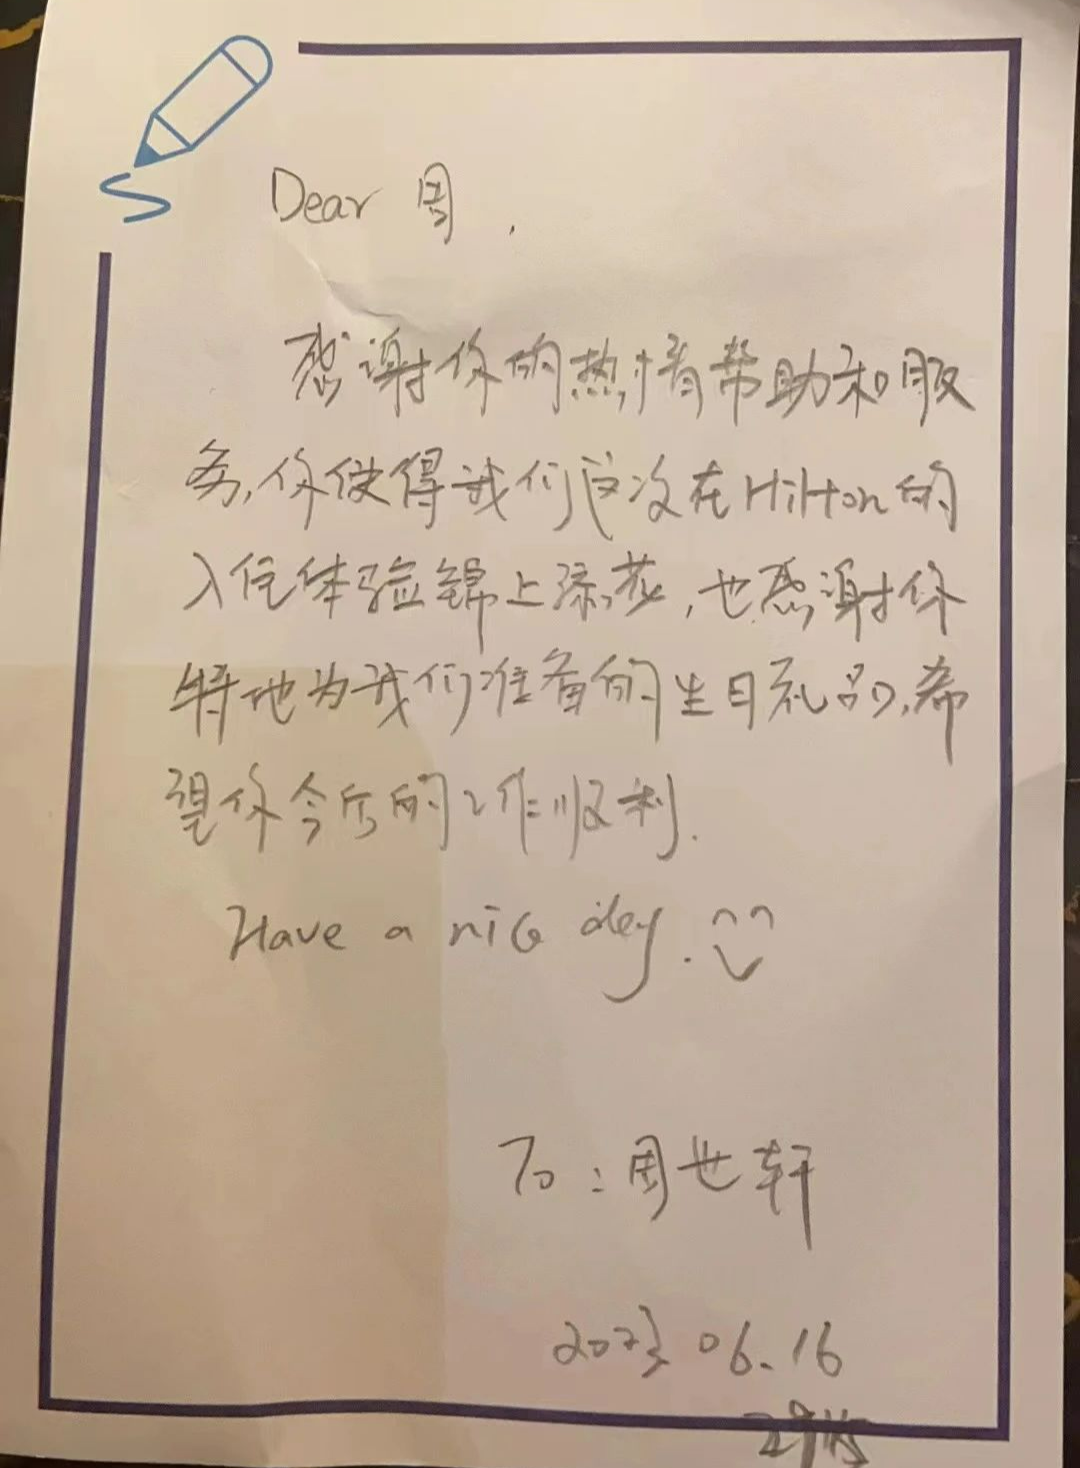 Dear 周,
感谢你的热情帮助和服
务,你使得我们这次在Hilton的
入住体验锦上添花,也感谢你
特地为我们准备的生日礼品,希
望你今后的工作顺利.
Have a nice day.
To:周世轩
2023.06.16